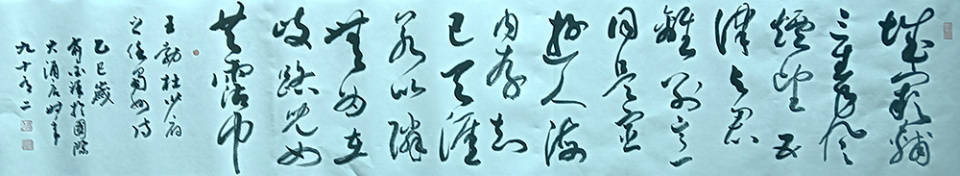 城闕輔
三秦風
煙望五
津与君
離別意
同是宦
遊人海
内存知
己天涯
若比隣
無為在
歧路兒女
共霑巾
王勃杜少府
之任蜀州詩
乙巳歲
於國際
大酒店時年
九十有二